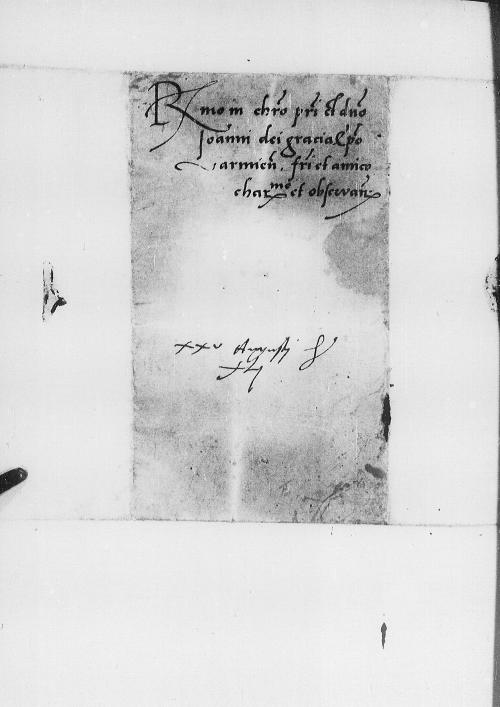 Rmo in chro pri et dno
Joanni dei gracia Epo
Varmien. fri et amico
charmo et observan
xxv Augusti